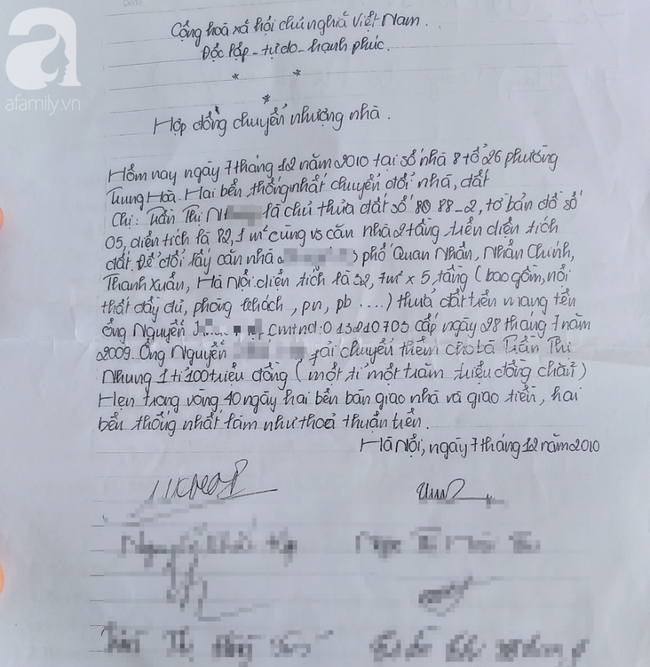 afamily.vn
Cộng hoà xã hội chủ nghĩa Việt Nam.
Độc lập - tự do - hạnh phúc.
* *
*
Hợp đồng chuyển nhượng nhà.
Hôm nay ngày 7 tháng 12 năm 2010 tại số nhà 8 tổ 26 phường
Trung Hoà. Hai bên thống nhất chuyển đổi nhà, đất
Chị: Trần Thị Nh là chủ thửa đất số 88-2, tờ bản đồ số
05, diện tích là 82,1 m² cùng vs căn nhà 2 tầng trên diện tích
đất. Để đổi lấy căn nhà phố Quan Nhân, Nhân Chính,
Thanh Xuân, Hà Nội. diện tích là 52,7m² x 5, tầng (bao gồm, nội
thất đầy đủ, phòng khách, pn, pb ....) thửa đất trên mang tên
ông Nguyễn cmtnd: 013210703 cấp ngày 28 tháng 7 năm
2009. Ông Nguyễn phải chuyển thêm cho bà Trần Thị
Nhung 1 tỉ 100 triệu đồng (một tỉ một trăm triệu đồng chẵn)
Hẹn trong vòng 40 ngày hai bên bàn giao nhà và giao tiền, hai
bên thống nhất làm như thoả thuận trên.
Hà Nội, ngày 7 tháng 12 năm 2010